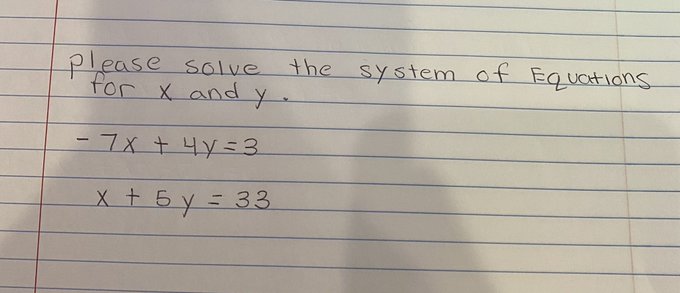 please solve the system of Equations
for x and y.
- 7x + 4y = 3
x + 5y = 33